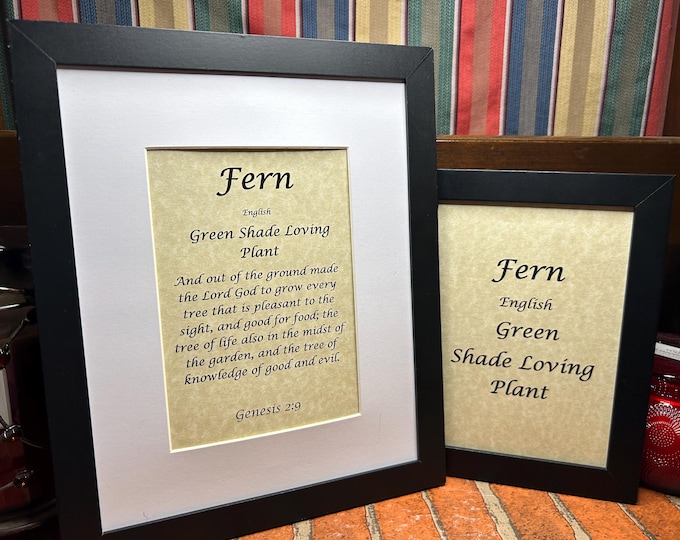 Fern
English
Green Shade Loving
Plant
And out of the ground made
the Lord God to grow every
tree that is pleasant to the
sight, and good for food; the
tree of life also in the midst of
the garden, and the tree of
knowledge of good and evil.
Genesis 2:9
Fern
English
Green
Shade Loving
Plant